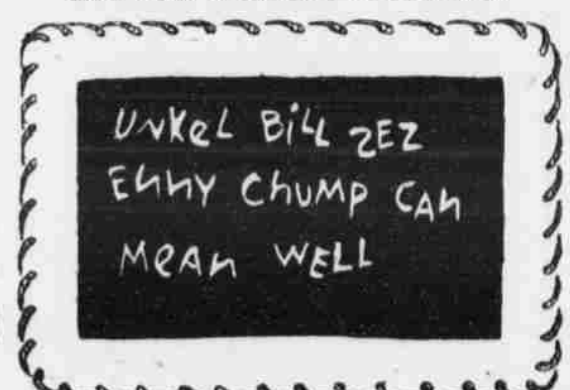 UNKeL BiLL ZEZ
ENNY CHUMP CAN
MEAN WELL